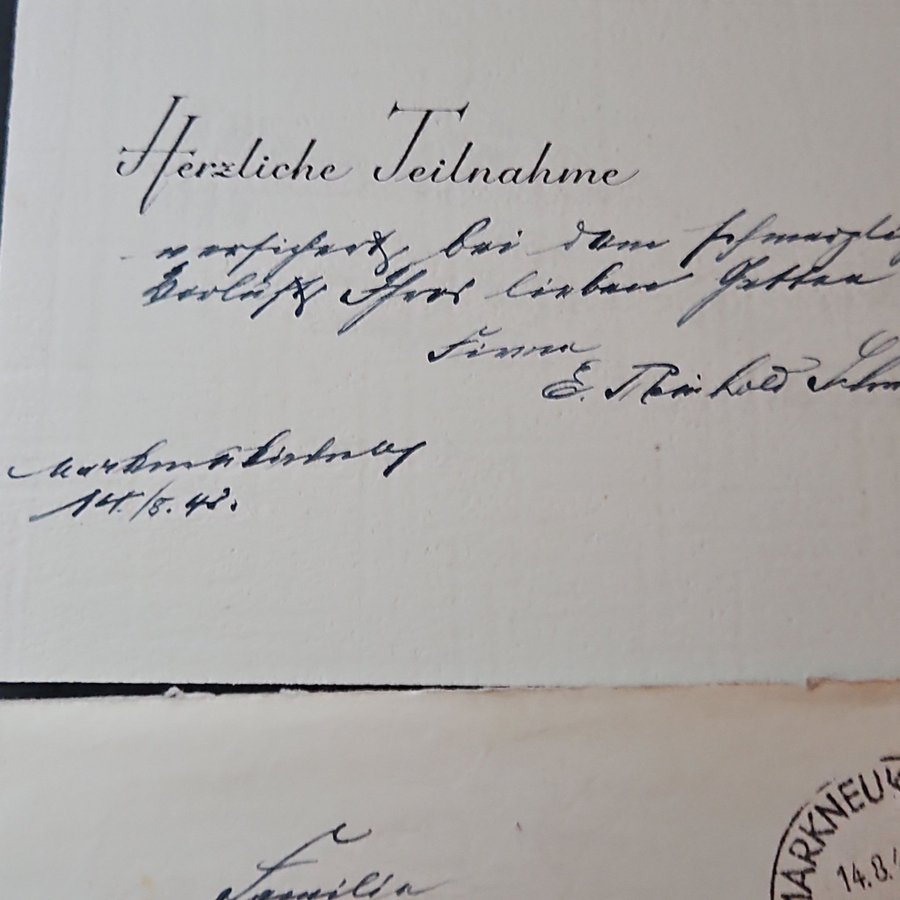 Herzliche Teilnahme
versichert, bei dem schmerzli
Verluste Ihres lieben Gatten
Firma
E. Reinhold Schm
Markneukirchen
14./8. 43.
MARKNEUK
14.8.4
Familie